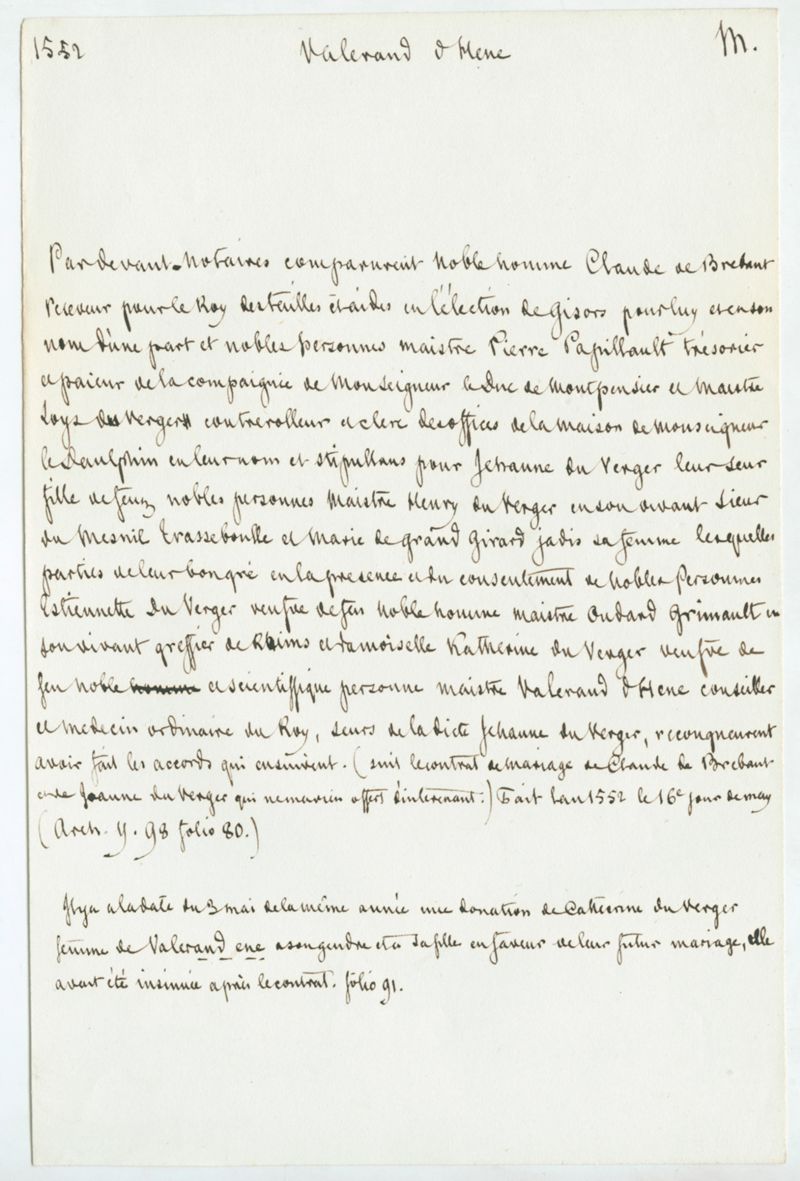 1552 Valerand d'Hene M.
Pardevant notaires comparurent noble homme Claude de Brebant
receveur pour le Roy des tailles et aides en l'élection de Gisors pour luy et en son
nom d'une part et nobles personnes maistre Pierre Papillault trésorier
et paieur de la compaignie de Monseigneur le Duc de Montpensier et Maistre
Loys du Verger controrolleur et clerc des offices de la maison de monseigneur
le Daulphin en leur nom et stipullans pour Jehanne du Verger leur seur
fille de feuz nobles personnes Maistre Henry du Verger en son vivant Sieur
du Mesnil Trasseboulle et Marie de grand Girard jadis sa femme lesquelles
parties de leur bon gré en la presence et du consentement de nobles Personnes
Estiennette Du Verger veufve de feu noble homme maistre Oudard Grimault en
son vivant greffier de Rhims et damoiselle Katherine du Verger veufve de
feu noble homme et scientiffique personne maistre Valerand d'Hene conseiller
et medecin ordinaire du Roy, seurs de la dicte Jehanne du Verger, recongneurent
avoir fait les accords qui ensuivent. (suit le contrat de mariage de Claude de Brebant
et de Jeanne du Verger qui ne m'a rien offert d'interenant.) Fait l'an 1552 le 16e jour de may
(Arch. Y. 98 folio 80.)
Il y a à la date du 3 mai de la même année une donation de Catherine du Verger
femme de Valerand ene a son gendre et a sa fille en faveur de leur futur mariage, elle
avait été insinuée après le contrat. folio 91.